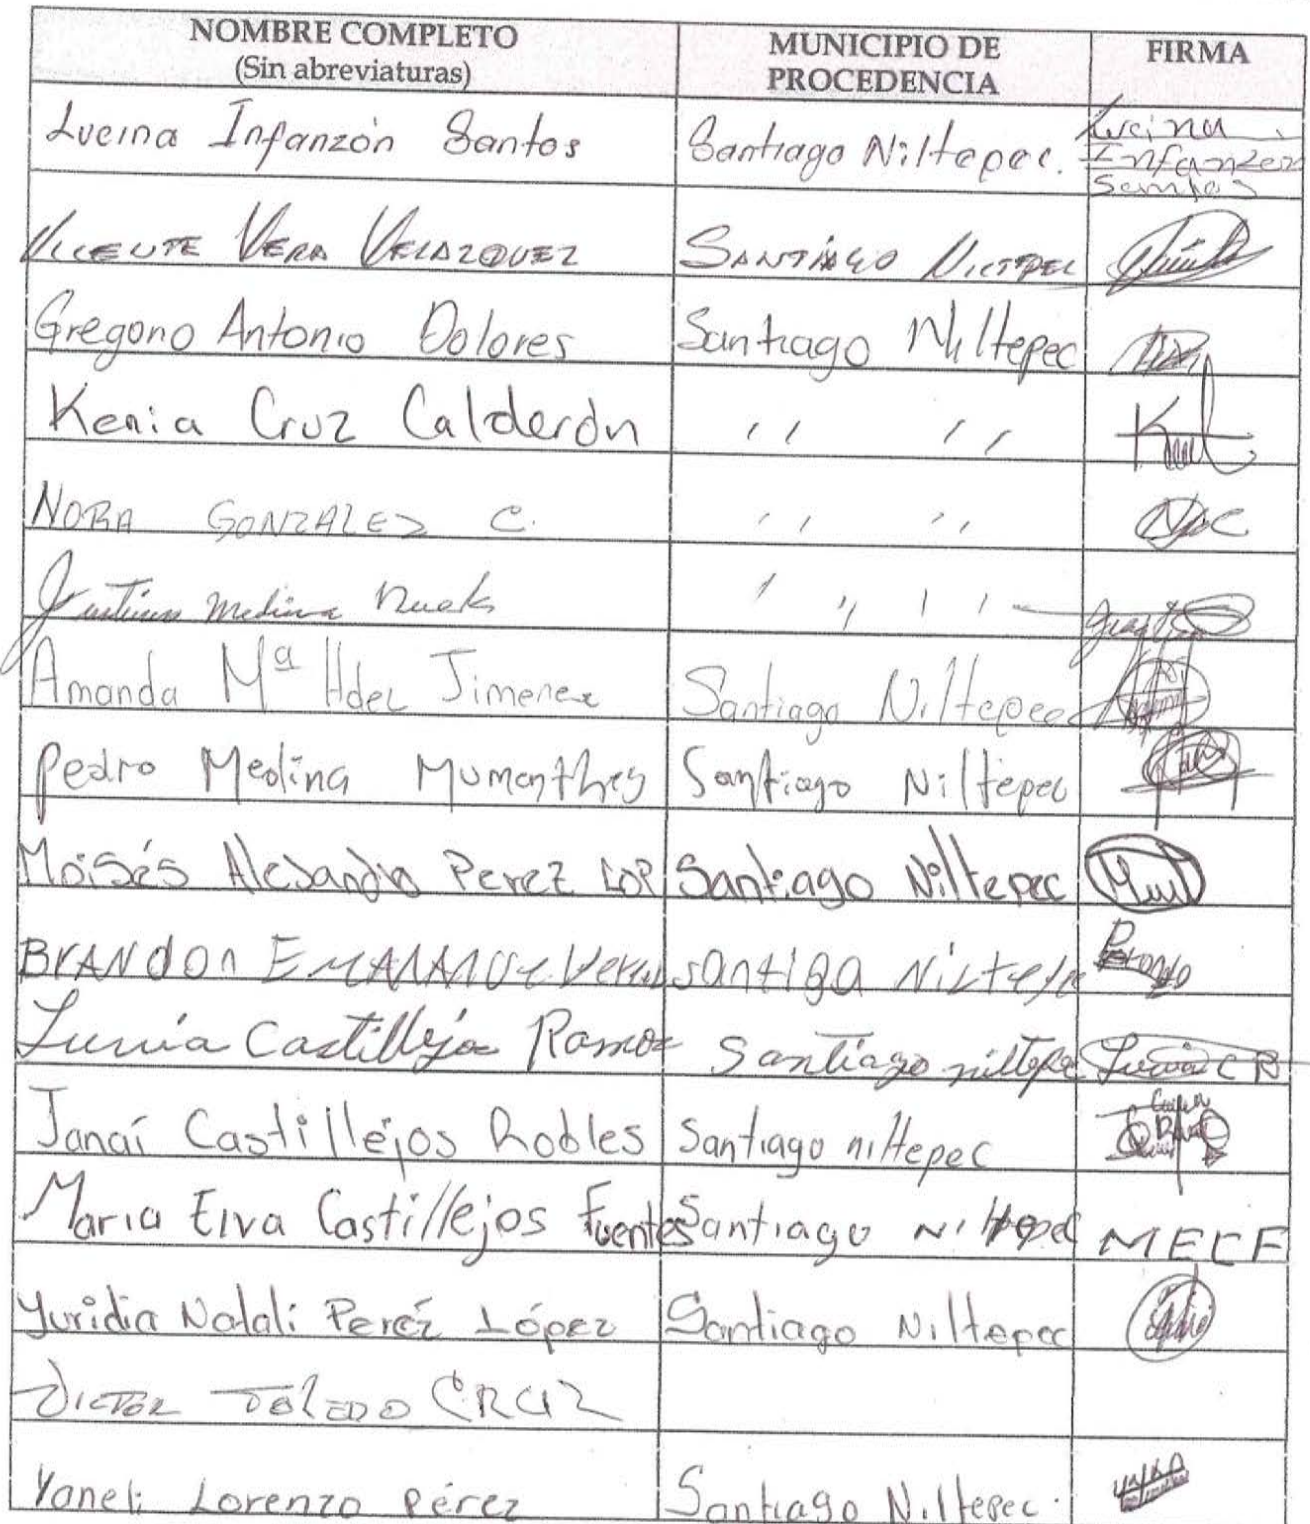 NOMBRE COMPLETO MUNICIPIO DE FIRMA
(Sin abreviaturas) PROCEDENCIA
Lucina Infanzón Santos Santiago Niltepec. Lucina
Infanzon
Santos
VICENTE VERA VELAZQUEZ SANTIAGO NILTEPEC
Gregorio Antonio Dolores Santiago Niltepec
Kenia Cruz Calderón ,, ,,
NORA GONZALEZ C. ,, ,,
Medina
Amanda Mª Hdez Jimenez Santiago Niltepec
Pedro Medina Santiago Niltepec
Moisés Alejandro Perez LOP Santiago Niltepec
BRANDON santiga Niltepe
Castillejos Ramos Santiago niltepe
Janaí Castillejos Robles Santiago niltepec
Maria Elva Castillejos Fuentes Santiago Niltepec MECF
Yuridia Natali Peréz López Santiago Niltepec
VICTOR TOLEDO CRUZ
Yaneli Lorenzo Pérez Santiago Niltepec.